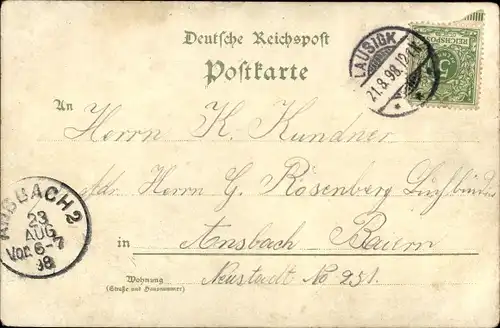 Deutsche Reichspost
Postkarte
LAUSIGK
21.8.98.12-1N.
REICHSPOST
5
An
Herrn K. Kundner
Adr. Herrn G. Rosenberg Buchbinder
in Ansbach Baiern
Neustadt No 251.
Wohnung
(Straße und Hausnummer)
ANSBACH 2
23
AUG
Vor. 6-7
98